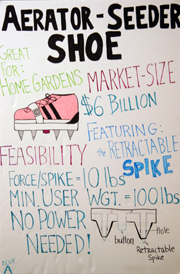 AERATOR-SEEDER
SHOE
GREAT
FOR:
HOME GARDENS
MARKET-SIZE
$6 BILLION
FEATURING:
the RETRACTABLE
SPIKE
FEASIBILITY
FORCE/SPIKE = 10 lbs
MIN. USER WGT. = 100 lbs
NO POWER
NEEDED!
button
Hole
Retractable
Spike
A